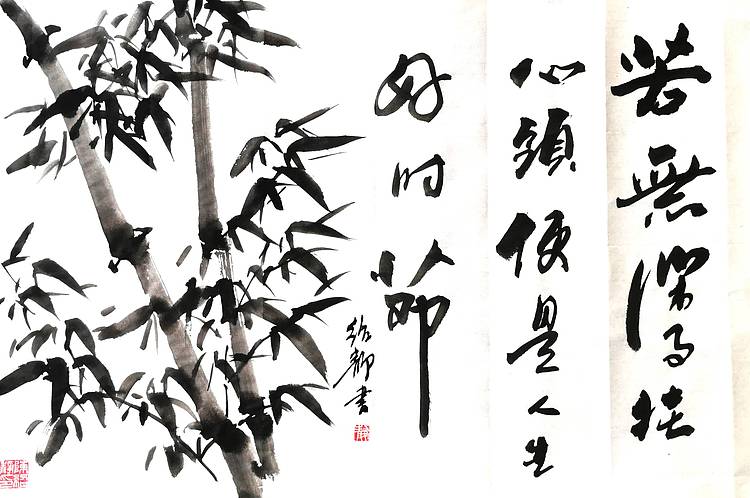 若無閑事挂
心頭便是人生
好时節
紹靜書